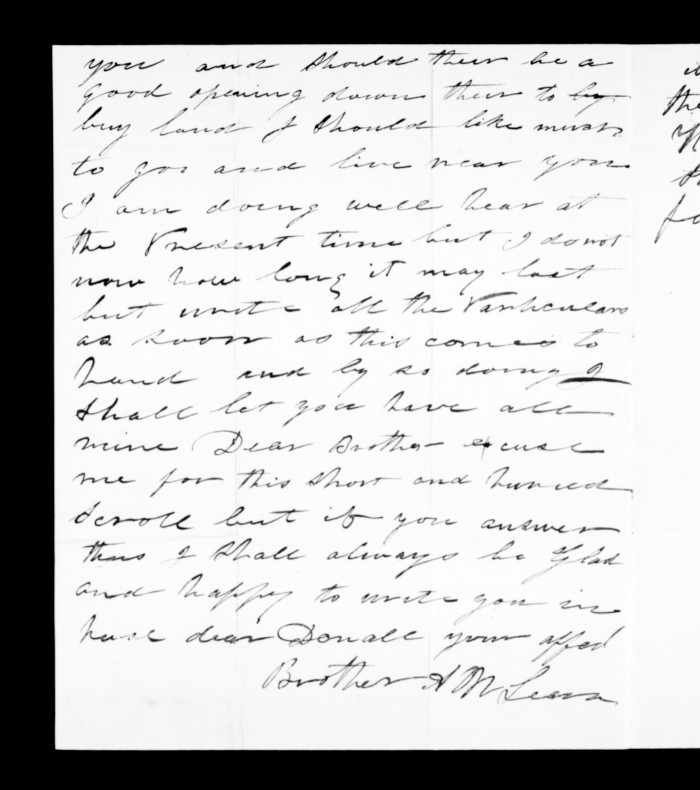 you and should their be a
good opening down their to by
buy land I should like much
to goo and live near you
I am doing well hear at
the Present time but I do not
now how long it may last
but write all the Particulars
as soon as this comes to
hand and by so doing I
shall let you have all
mine Dear Brother excuse
me for this short and hurried
scroll but if you answer
this I shall always be Glad
and happy to write you in
hast dear Donall your affec
Brother A McLean